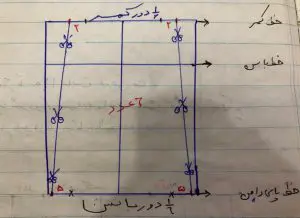 ۱/۶ دور کمر
خط کمر
۲ ۲
خط باسن
۶ عدد
۵ ۵
خط پایین دامن
۱/۶ دور باسن